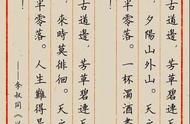 古道邊。芳草碧連天
夕陽山外山。天之
半零落。一杯濁酒
古道邊。芳草碧連天
來時莫徘徊。天之
半零落。人生難得是
——李叔同《